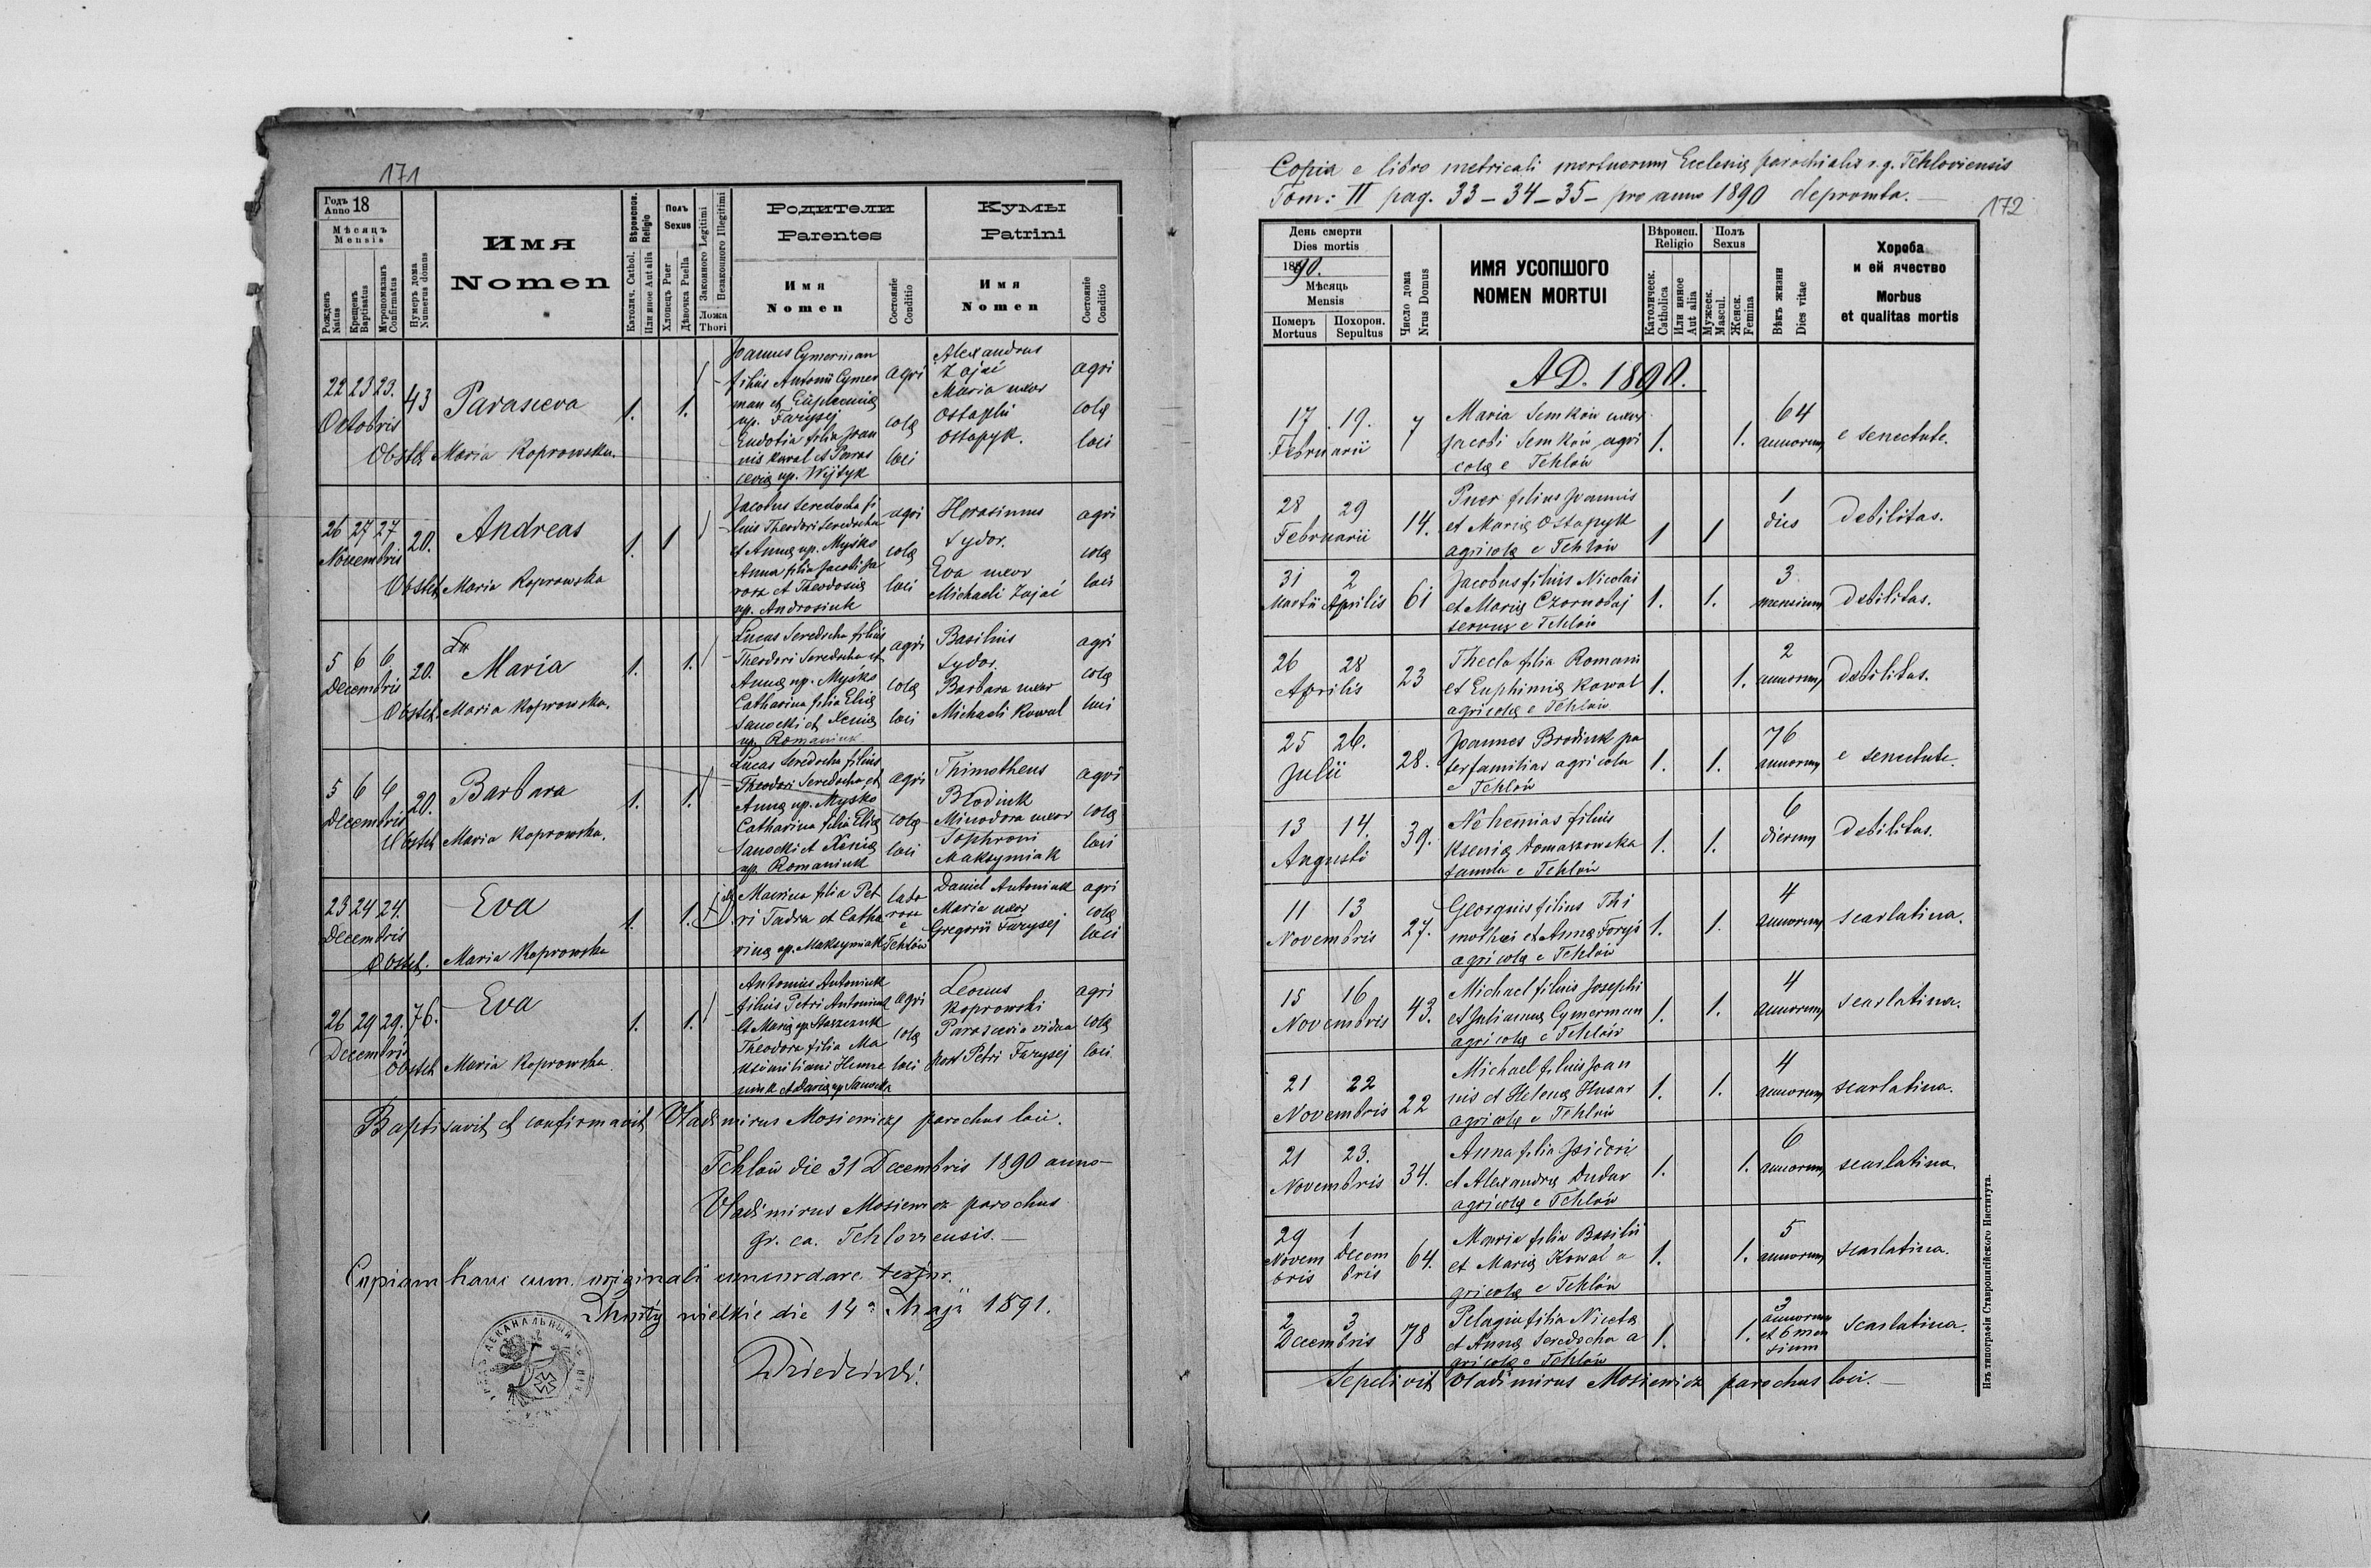 171
Годъ
Anno 18
Мѣсяць
Mensis
Рожденъ
Natus
Крещенъ
Baptisatus
Муропомазанъ
Confirmatus
Нумеръ дома
Numerus domus
Имя
Nomen
Вѣроиспов.
Religio
Католич. Cathol.
Или иное Aut alia
Полъ
Sexus
Хлопець Puer
Дѣвочка Puella
Законного Legitimi
Незаконного Illegitimi
Ложа
Thori
Родители
Parentes
Имя
Nomen
Состояніе
Conditio
Кумы
Patrini
Имя
Nomen
Состояніе
Conditio
22 23 23.
Octobris
43
Parasceva
Obstet Maria Koprowska.
1. 1.
Joannes Cymerman
filius Antonii Cymer
man et Euphemiæ
np. Farysej
Eudotia filia Joan
nis Kowal et Paras
ceviæ np. Wojtyk
agri
colæ
loci
Alexandrus
Zajać
Maria uxor
Ostaphii
Ostapyk.
agri
colæ
loci
26 27 27
Novembris
20.
Andreas
Obstet Maria Koprowska
1. 1
Jacobus Seredocha fi
lius Theodori Seredocha
et Annæ np. Myśko
Anna filia Jacobi Ja
rosz et Theodosiæ
np. Androsiuk
agri
colæ
loci
Herasimus
Sydor.
Eva uxor
Michaeli Zajać
agri
colæ
loci
5 6 6.
Decembris
20.
Maria
Obstet. Maria Koprowska.
1. 1.
Lucas Seredocha filius
Theodori Seredocha et
Annæ np. Myśko
Catharina filia Eliæ
Sanocki et Xeniæ
np. Romaniuk
agri
colæ
loci
Basilius
Sydor.
Barbara uxor
Michaeli Kowal
agri
colæ
loci
5 6 6
Decembris
20.
Barbara
Obstet Maria Koprowska.
1. 1.
Lucas Seredocha filius
Theodori Seredocha et
Annæ np. Myśko
Catharina filia Eliæ
Sanocki et Xeniæ
np. Romaniuk
agri
colæ
loci
Thimotheus
Brodiuk
Minodora uxor
Sophroni
Maksymiak
agri
colæ
loci
23 24 24.
Decembris
Eva
Obstet. Maria Koprowska
1. 1.
Marina filia Pet
ri Tadra et Catha
rinæ np. Maksymiak
labo
rosa
e
Tehlów
Daniel Antoniuk
Maria uxor
Gregorii Farysej
agri
colæ
loci
26 29 29.
Decembris
76.
Eva
Obstet Maria Koprowska
1. 1.
Antonius Antoniuk
filius Petri Antoniuk
et Mariæ np. Staszczuk
Theodora filia Ma
ksimiliani Hume
niuk et Dariæ np. Sanocka
agri
colæ
loci
Leonus
Koprowski
Parascevia vidua
post Petri Farysej
agri
colæ
loci
Baptisavit et confirmavit Vladimirus Mosiewicz parochus loci.
Tehlów die 31 Decembris 1890 anno
Vladimirus Mosiewicz parochus
gr. ca. Tehloviensis.
Copiam hanc cum originali concordare testor.
wielkie die 14a Maji 1891.
Copia e libro metricali mortuorum Ecclesiæ parochialis r. g. Tehloviensis
Tom: II pag. 33-34-35- pro anno 1890 depromta.
172
День смерти
Dies mortis
1890.
Мѣсяць
Mensis
Померъ
Mortuus
Похорон.
Sepultus
Число дома
Nrus Domus
ИМЯ УСОПШОГО
NOMEN MORTUI
Вѣроисп.
Religio
Католическ.
Catholica
Или инное
Aut alia
Полъ
Sexus
Мужеск.
Mascul.
Женск.
Femina
Вѣкъ жизни
Dies vitae
Хороба
и ей ячество
Morbus
et qualitas mortis
AD. 1890.
17 19.
Februarii
7
Maria Semków uxor
Jacobi Semków agri
colæ e Tehlów
1. 1.
64
annorum
e senectute.
28 29
Februarii
14.
Puer filius Joannis
et Mariæ Ostapyk
agricolæ e Tehlów
1 1
1
dies
debilitas.
31 2
Martii Aprilis
61
Jacobus filius Nicolai
et Mariæ Czornobaj
servus e Tehlów
1. 1.
3
mensium
debilitas.
26 28
Aprilis
23
Thecla filia Romani
et Euphimiæ Kowal
agricolæ e Tehlów
1. 1.
2
annorum
debilitas.
25 26.
Julii
28.
Joannes Brodiuk pa
terfamilias agricola
e Tehlów
1. 1.
76
annorum
e senectute.
13 14.
Augusti
39.
Nehemias filius
Kseniæ Domaszowska
famula e Tehlów
1. 1.
6
dierum
debilitas.
11 13
Novembris
27.
Georgius filius Thi
mothei et Annæ Foryś
agricolæ e Tehlów
1. 1.
4
annorum
scarlatina.
15 16
Novembris
43.
Michael filius Josephi
et Julianna Cymerman
agricolæ e Tehlów
1. 1.
4
annorum
scarlatina.
21 22
Novembris
22
Michael filius Joan
nis et Helenæ Husar
agricolæ e Tehlów
1. 1.
4
annorum
scarlatina.
21 23.
Novembris
34.
Anna filia Isidori
et Alexandræ Dudar
agricolæ e Tehlów
1. 1.
6
annorum
scarlatina.
29 1
Novem Decem
bris bris
64.
Maria filia Basilii
et Mariæ Kowal a
gricolæ e Tehlów
1. 1.
5
annorum
scarlatina.
2 3
Decembris
78
Pelagia filia Nicetæ
et Annæ Seredocha a
gricolæ e Tehlów
1. 1.
3
annorum
et 6 men
sium
scarlatina.
Sepelivit Vladimirus Mosiewicz parochus loci.
Изъ типографіи Ставропигійского Института.